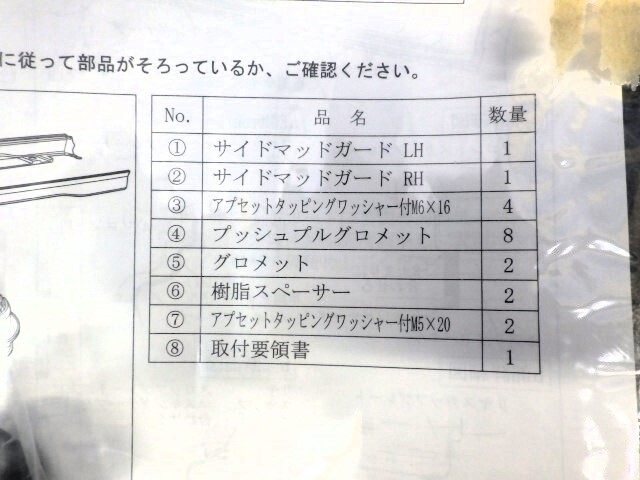 に従って部品がそろっているか、ご確認ください。
No. 品 名 数量
① サイドマッドガード LH 1
② サイドマッドガード RH 1
③ アプセットタッピングワッシャー付M6×16 4
④ プッシュプルグロメット 8
⑤ グロメット 2
⑥ 樹脂スペーサー 2
⑦ アプセットタッピングワッシャー付M5×20 2
⑧ 取付要領書 1